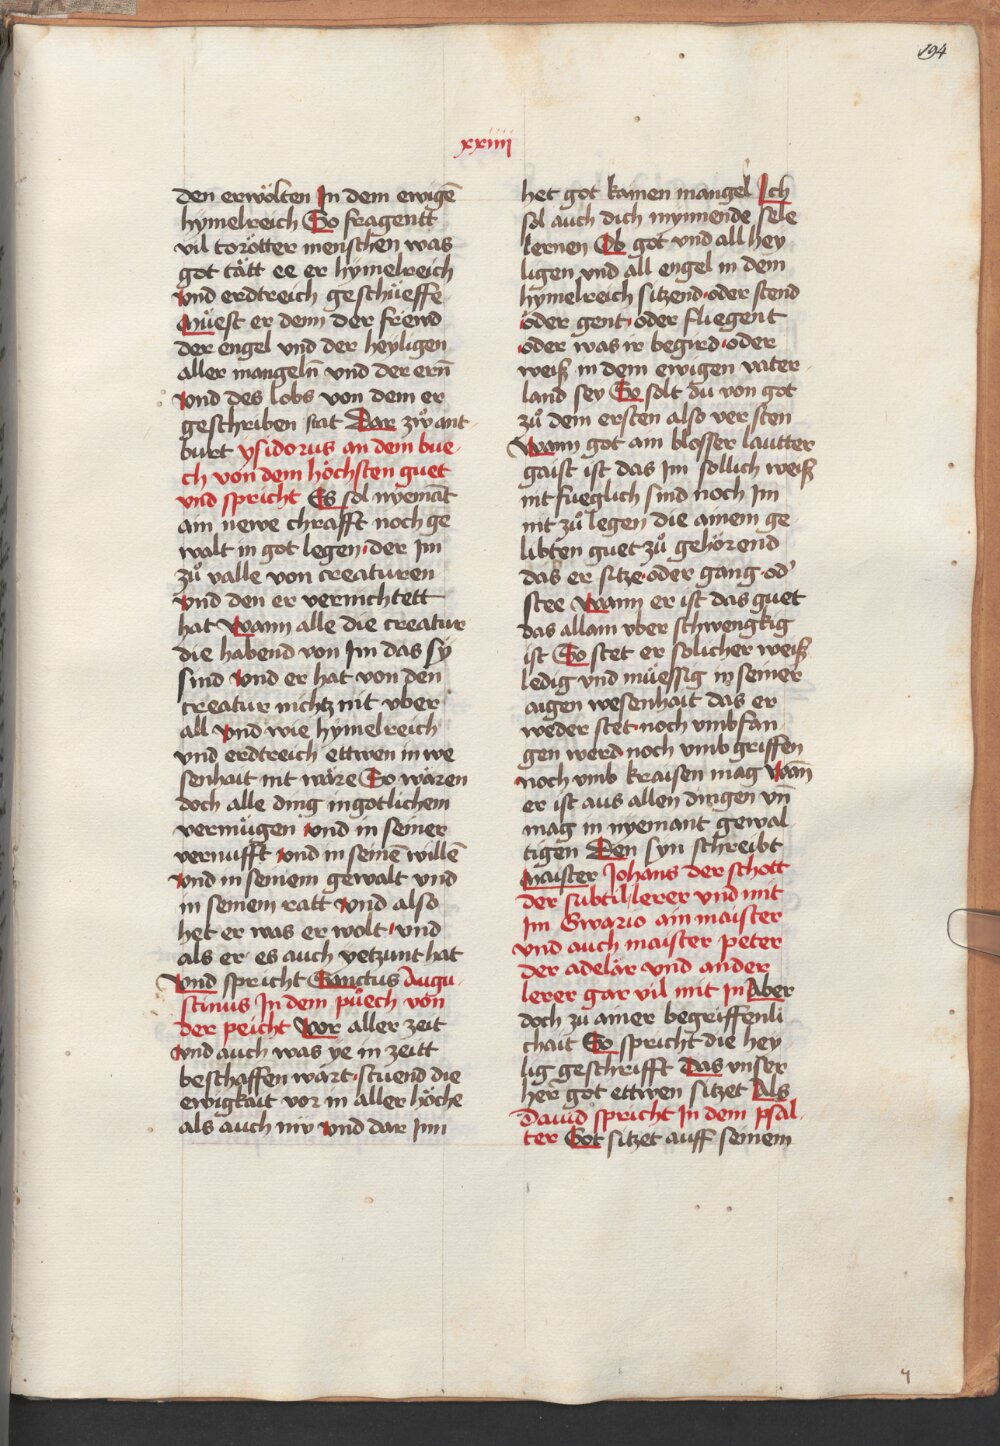 194
xxiiii
den erwölten In dem ewigē
hymelreich So fragentt
vil torötter menschen was
got tätt ee er hymelreich
vnd erdtreich geschüeffe
Müest er denn der frewd
der engel vnd der heyligen
aller mangeln̄ vnd der ern̄
vnd des lobs von dem er
geschriben stat Dar zwͦ ant
burt ysidorus an dem bue
ch von dem höchsten guet
vnd spricht Es sol nyemāt
ain newe chrafft noch ge
walt in got legen · der Im
zuͦ valle von creaturen
vnd den er vernichtett
hat Wann alle die creatur
die habend von Im das sy
sind vnd er hat von den
creatur nichtz nit vber
all vnd wie hymelreich
vnd erdtreich ettwen in we
senhait nit wäre So wären
doch alle ding in gotlichem
vermügen vnd in seiner
vernufft vnd in seinē willē
vnd in seinem gewalt vnd
in seinem ratt vnd also
het er was er wolt · vnd
als er es auch yetzunt hat
Vnd spricht Sanctus Augu
stinus In dem puͦech von
der peicht Vor aller zeit
vnd auch was ye in zeitt
beschaffen wart · stuend die
ewigkait vor in aller höche
als auch nw vnd dar Inn
het got kainen mangel Ich
sol auch dich mynnende sele
lernen Ob got vnd all hey
ligen vnd all engel in dem
hymelreich sitzend · oder stend
· oder gent · oder fliegent
· oder was ir begird · oder
weiß in dem ewigen vater
land sey So solt du von got
zuͦ dem ersten also versten
Wann got ain blosser lautter
gaist ist das Im sollich weiß
nit fueglich sind noch Im
nit zuͦ legen die ainem ge
libten guet zuͦ gehörend
das er sitze · oder gang · od'
stee Wann er ist das guet
das allain vber schwengkig
ist So stet er solicher weiß
ledig vnd müessig in seiner
aigen wesenhait das er
weder stet · noch vmbfan
gen werd noch vmb griffen
noch vmb kraisen mag Wan̄
er ist aus allen dingen vn̄
mag in nyemant gewal
tigen Den syn schreibt
Maister Johans der schott
der subtil lerer vnd mit
Im Gwario ain maister
vnd auch maister peter
der adelär vnd ander
lerer gar vil mit In Aber
doch zu ainer begriffenli
chait So spricht die hey
lig geschrifft Das vnser
her got ettwen sitzet Als
Dauid spricht In dem psal
ter Got sitzet auff seinem